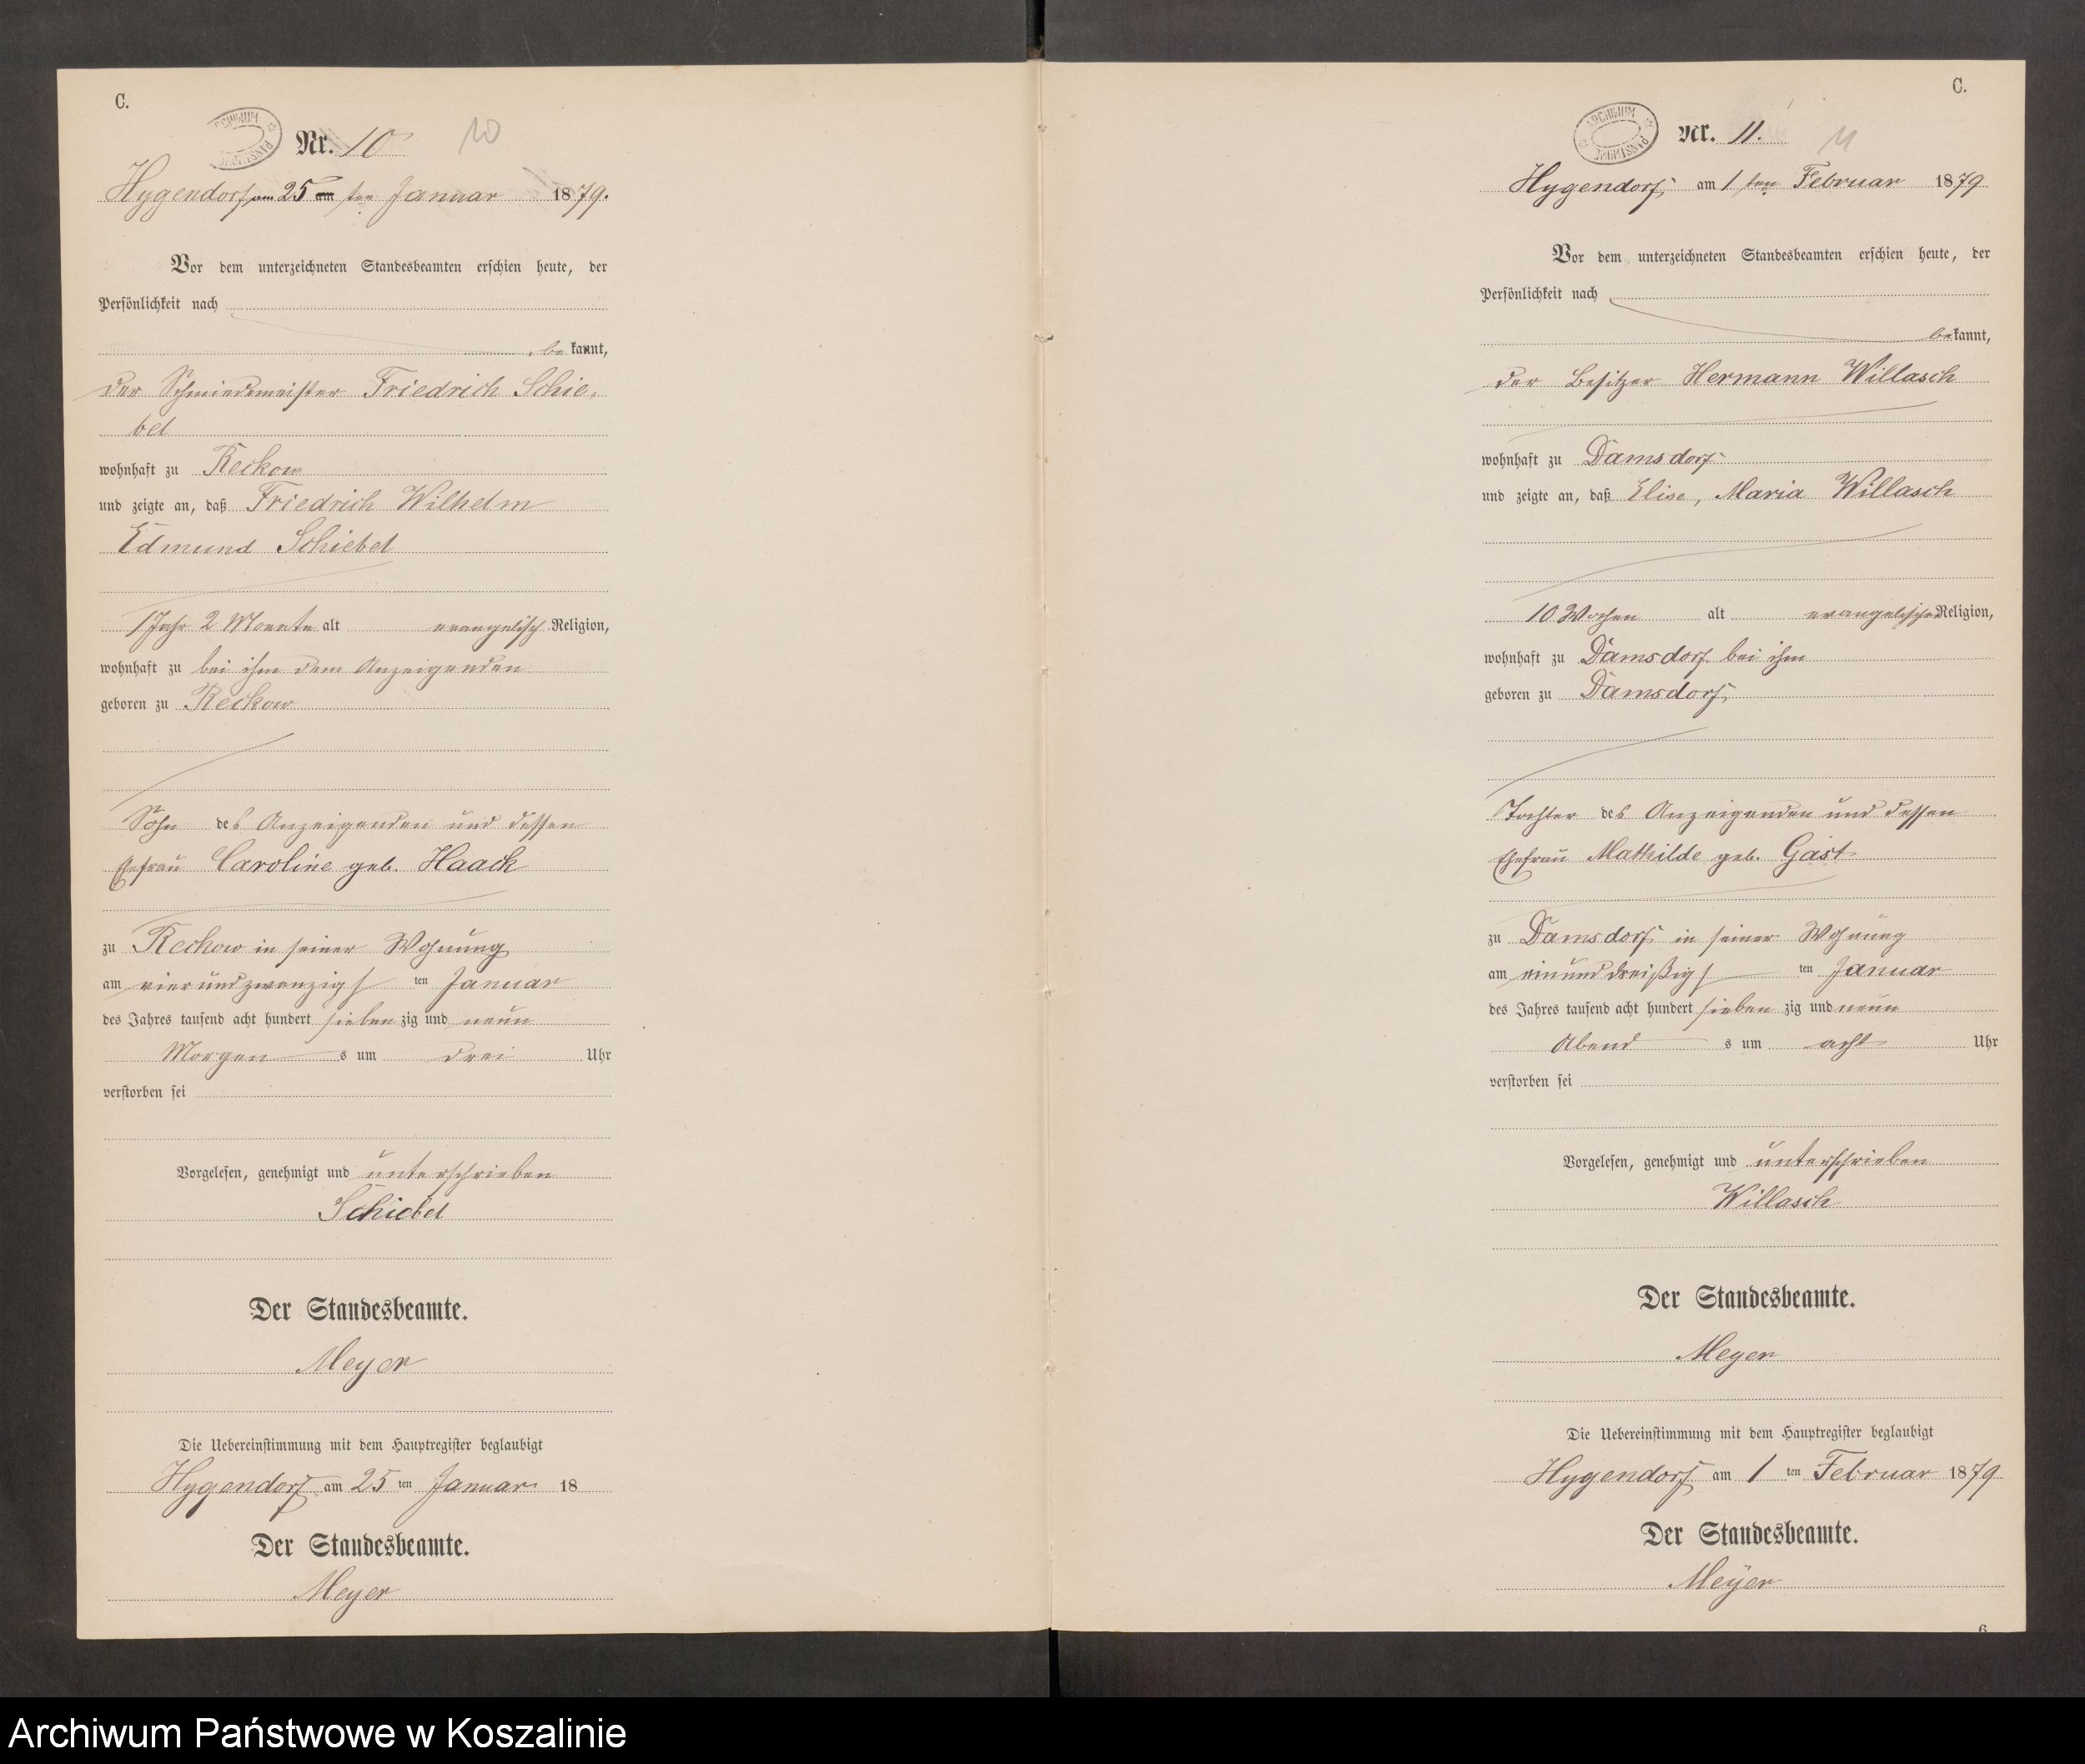 C.
ARCHIWUM PAŃSTWOWE
Nr. 10
10
Hygendorf am 25 ten Januar 1879.
Vor dem unterzeichneten Standesbeamten erschien heute, der
Persönlichkeit nach
bekannt,
der Schmiedemeister Friedrich Schie-
bel
wohnhaft zu Reckow
und zeigte an, daß Friedrich Wilhelm
Edmund Schiebel
1 Jahr 2 Monate alt evangelisch Religion,
wohnhaft zu bei ihm dem Anzeigenden
geboren zu Reckow
Sohn des Anzeigenden und dessen
Ehefrau Caroline geb. Haack
zu Reckow in seiner Wohnung
am vierundzwanzigsten Januar
des Jahres tausend acht hundert siebenzig und neun
Morgens um drei Uhr
verstorben sei
Vorgelesen, genehmigt und unterschrieben
Schiebel
Der Standesbeamte.
Meyer
Die Uebereinstimmung mit dem Hauptregister beglaubigt
Hygendorf am 25 ten Januar 18
Der Standesbeamte.
Meyer
C.
ARCHIWUM PAŃSTWOWE
Nr. 11.
11
Hygendorf, am 1 ten Februar 1879
Vor dem unterzeichneten Standesbeamten erschien heute, der
Persönlichkeit nach
bekannt,
der Besitzer Hermann Willasch
wohnhaft zu Damsdorf
und zeigte an, daß Elise, Maria Willasch
10 Wochen alt evangelischer Religion,
wohnhaft zu Damsdorf bei ihm
geboren zu Damsdorf
Tochter des Anzeigenden und dessen
Ehefrau Mathilde geb. Gast
zu Damsdorf in seiner Wohnung
am einunddreißigsten Januar
des Jahres tausend acht hundert siebenzig und neun
Abends um acht Uhr
verstorben sei
Vorgelesen, genehmigt und unterschrieben
Willasch
Der Standesbeamte.
Meyer
Die Uebereinstimmung mit dem Hauptregister beglaubigt
Hygendorf am 1 ten Februar 1879
Der Standesbeamte.
Meyer
6
Archiwum Państwowe w Koszalinie